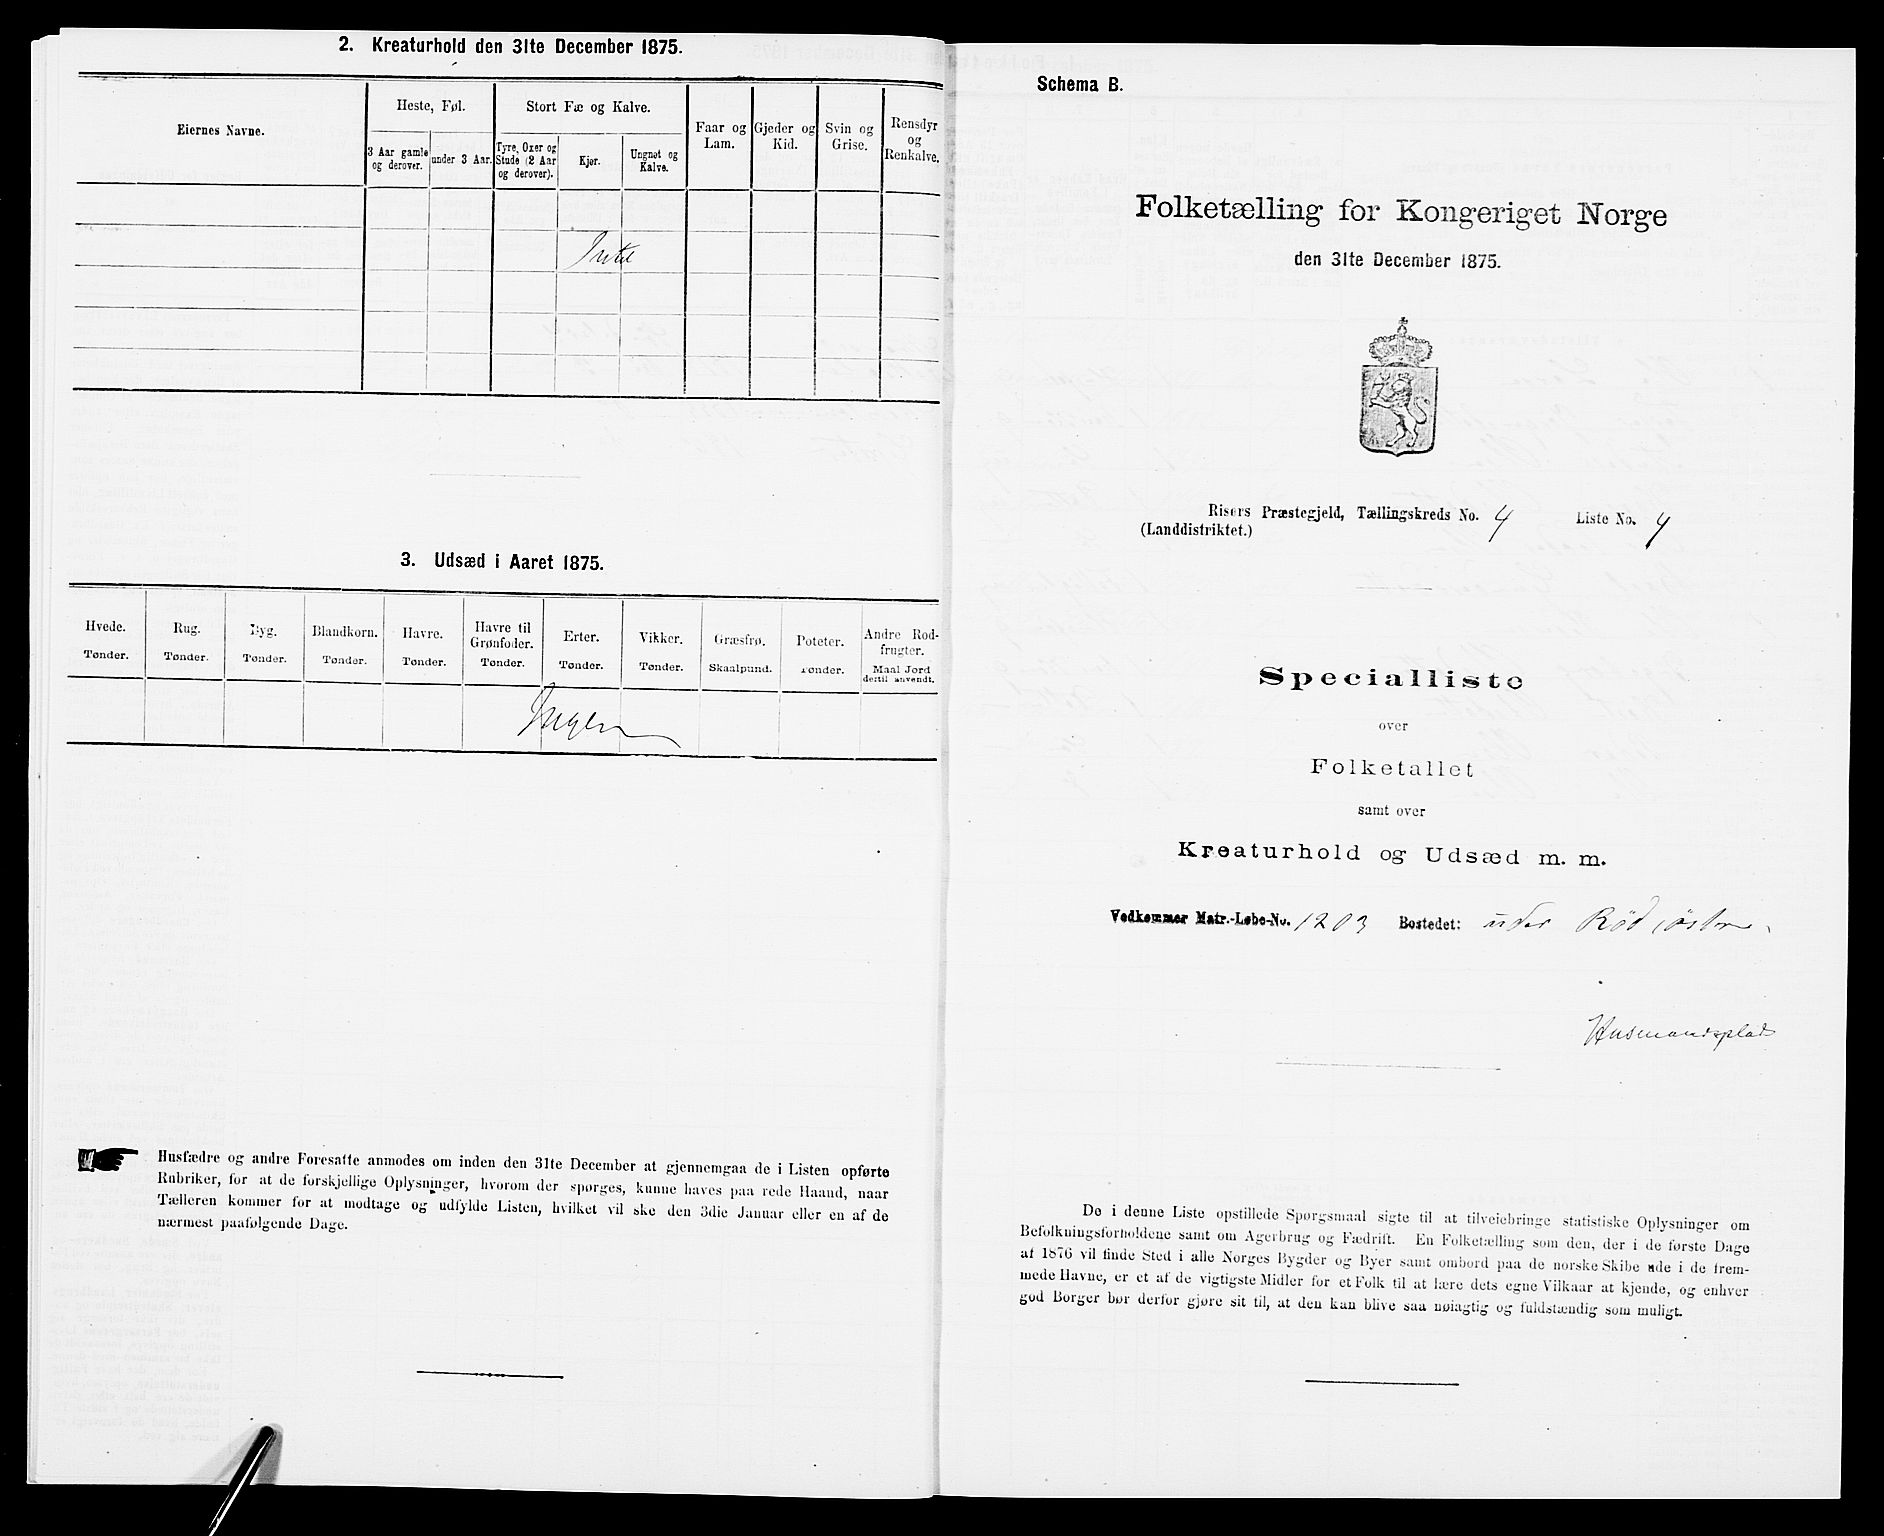 2. Kreaturhold den 31te December 1875.
Eiernes Navne.
Heste, Føl.
Stort Fæ og Kalve.
Faar og Lam.
Gjeder og Kid.
Svin og Grise.
Rensdyr og Renkalve.
3 Aar gamle og derover.
under 3 Aar.
Tyre, Oxer og Stude (2 Aar og derover).
Kjør.
Ungnøt og Kalve.
3. Udsæd i Aaret 1875.
Hvede. Tønder.
Rug. Tønder.
Byg. Tønder.
Blandkorn. Tønder.
Havre. Tønder.
Havre til Grønfoder. Tønder.
Erter. Tønder.
Vikker. Tønder.
Græsfrø. Skaalpund.
Poteter. Tønder.
Andre Rodfrugter. Maal Jord dertil anvendt.
Ingen
Husfædre og andre Foresatte anmodes om inden den 31te December at gjennemgaa de i Listen opførte
Rubriker, for at de forskjellige Oplysninger, hvorom der spørges, kunne haves paa rede Haand, naar
Tælleren kommer for at modtage og udfylde Listen, hvilket vil ske den 3die Januar eller en af de
nærmest paafølgende Dage.
Schema B.
Folketælling for Kongeriget Norge
den 31te December 1875.
Risørs Præstegjeld, Tællingskreds No. 4 Liste No. 4
(Landdistriktet.)
Specialliste
over
Folketallet
samt over
Kreaturhold og Udsæd m. m.
Vedkommer Matr.-Løbe-No. 1203 Bostedet: under Rød østre
Husmandsplads
De i denne Liste opstillede Spørgsmaal sigte til at tilveiebringe statistiske Oplysninger om
Befolkningsforholdene samt om Agerbrug og Fædrift. En Folketælling som den, der i de første Dage
af 1876 vil finde Sted i alle Norges Bygder og Byer samt ombord paa de norske Skibe ude i de frem-
mede Havne, er et af de vigtigste Midler for et Folk til at lære dets egne Vilkaar at kjende, og enhver
god Borger bør derfor gjøre sit til, at den kan blive saa nøiagtig og fuldstændig som muligt.